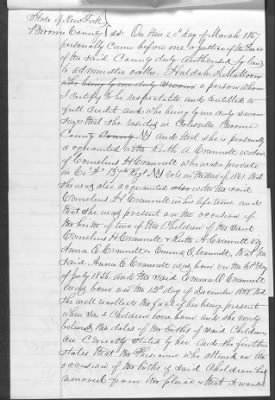 State of New York
Broome County } SS: On this 20th day of March 1867
personally came before me a Justice of the Peace
of the said County duly authorized by law
to administer oaths. Huldah
who being by me duly sworn a person whom
I certify to be respectable and entitled to
full credit and who being by me duly sworn
says that she resides in Colesville Broome
County NY And that she is personally
acquainted with Ruth A Crammett widow
of Cornelius H Crammett who was a private
in Co "F" Regt NY Vols in the War of 1861 that
she was also acquainted with the said
Cornelius H Crammett in his life time and
that she was present on the occasion of
the birth of two of the Children of the said
Cornelius H Crammett & Ruth A Crammett viz
Anna E Crammett & Emma A Crammett, that the
said Anna E Crammett was born on the 31st day
of July 1856 and the said Emma A Crammett
was born on the 13th day of December that
she well recollects the fact of her being present
when said Children were born and she verily
believes the dates of the births of said Children
are Correctly stated by her. And she further
states that the Physician who attended on the
occasion of the births of said Children has
removed from the place that it would